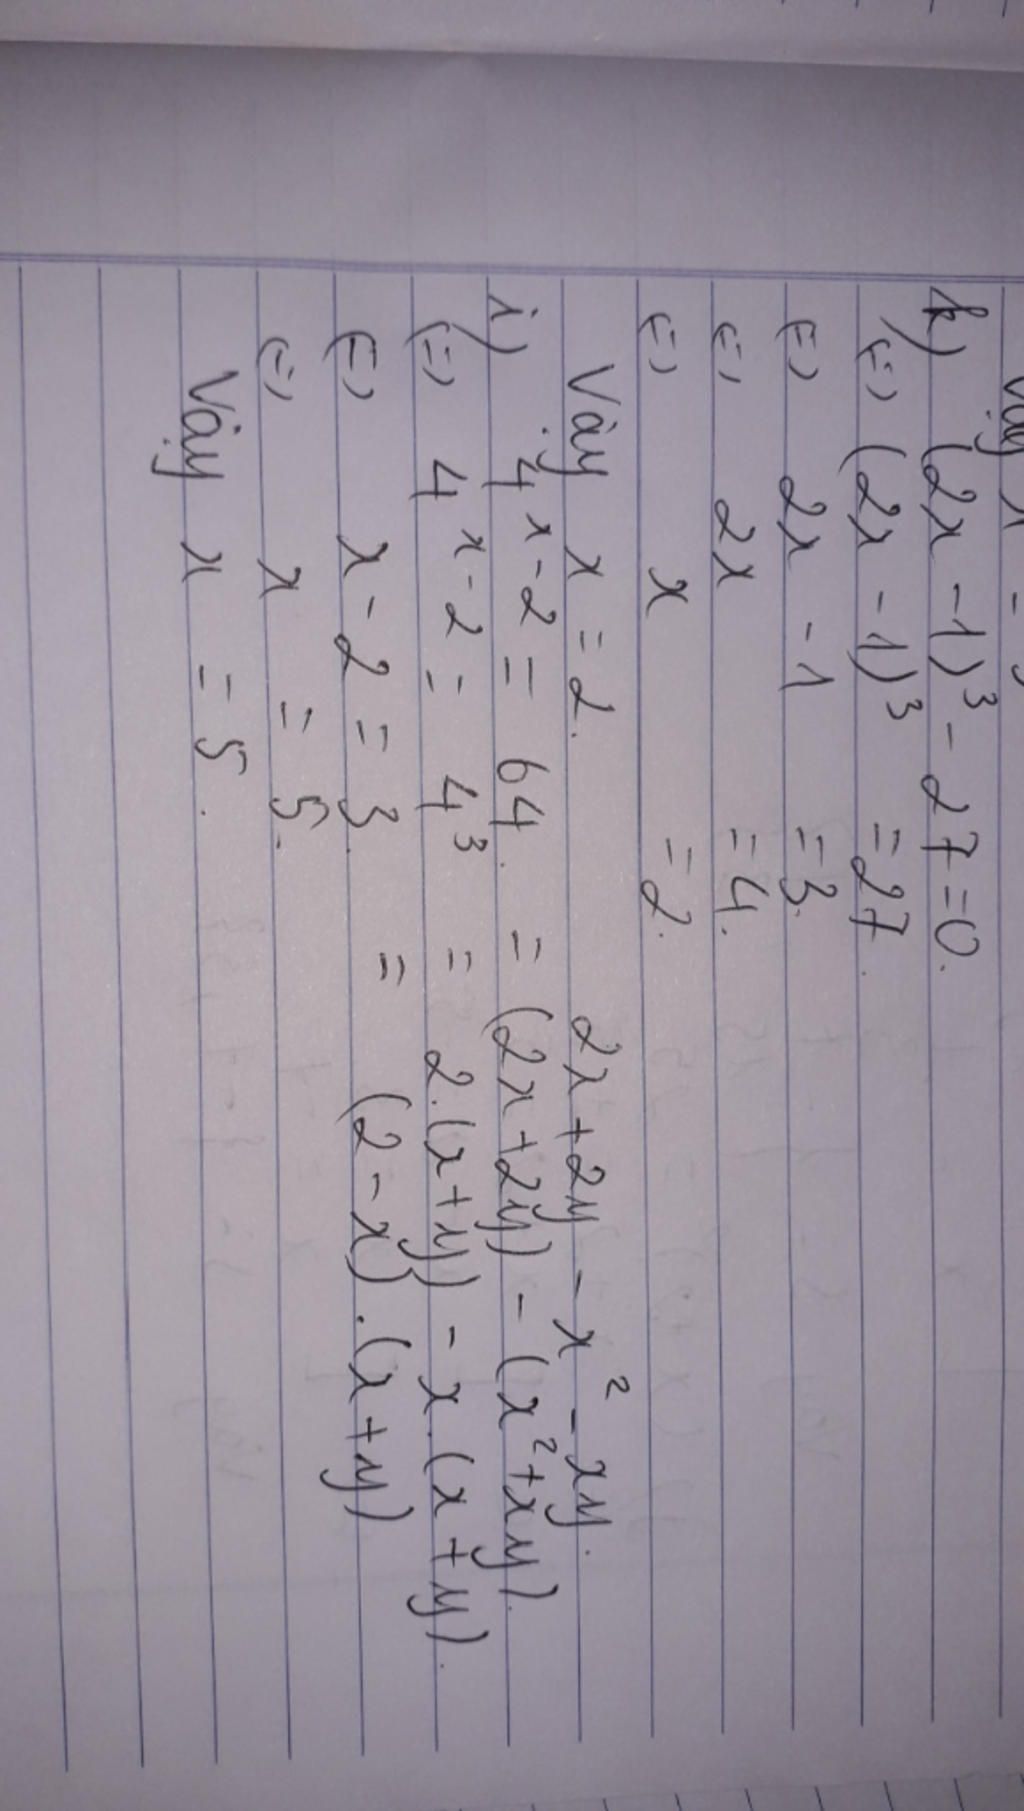 Vậy x =
k) (2x - 1)³ - 27 = 0.
(=) (2x - 1)³ = 27.
(=) 2x - 1 = 3.
(=) 2x = 4.
(=) x = 2.
Vậy x = 2.
i) 4^x-2 = 64.
(=) 4^x-2 = 4³
(=) x - 2 = 3.
(=) x = 5.
Vậy x = 5.
2x + 2y - x² - xy.
= (2x + 2y) - (x² + xy).
= 2.(x + y) - x.(x + y).
= (2 - x).(x + y)